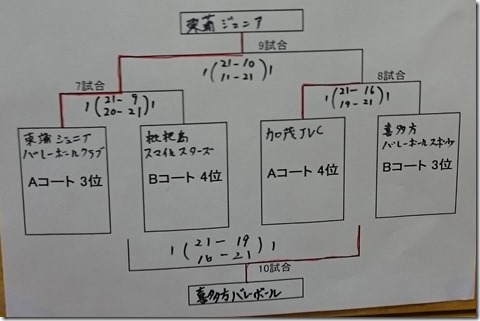 東蒲ジュニア
9試合
1 (21-10 11-21) 1
7試合
1 (21-9 20-21) 1
8試合
(21-16 19-21) 1
東蒲ジュニア
バレーボールクラブ
Aコート 3位
枇杷島
スマイルスターズ
Bコート 4位
加茂JVC
Aコート 4位
喜多方
バレーボールスポ少
Bコート 3位
1 (21-19 16-21) 1
10試合
喜多方バレーボール